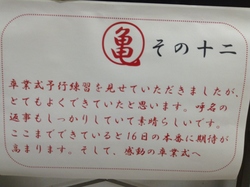 亀 その十二
卒業式予行練習を見せていただきましたが、
とてもよくできていたと思います。呼名の
返事もしっかりしていて素晴らしいです。
ここまでできていると16日の本番に期待が
高まります。そして、感動の卒業式へ